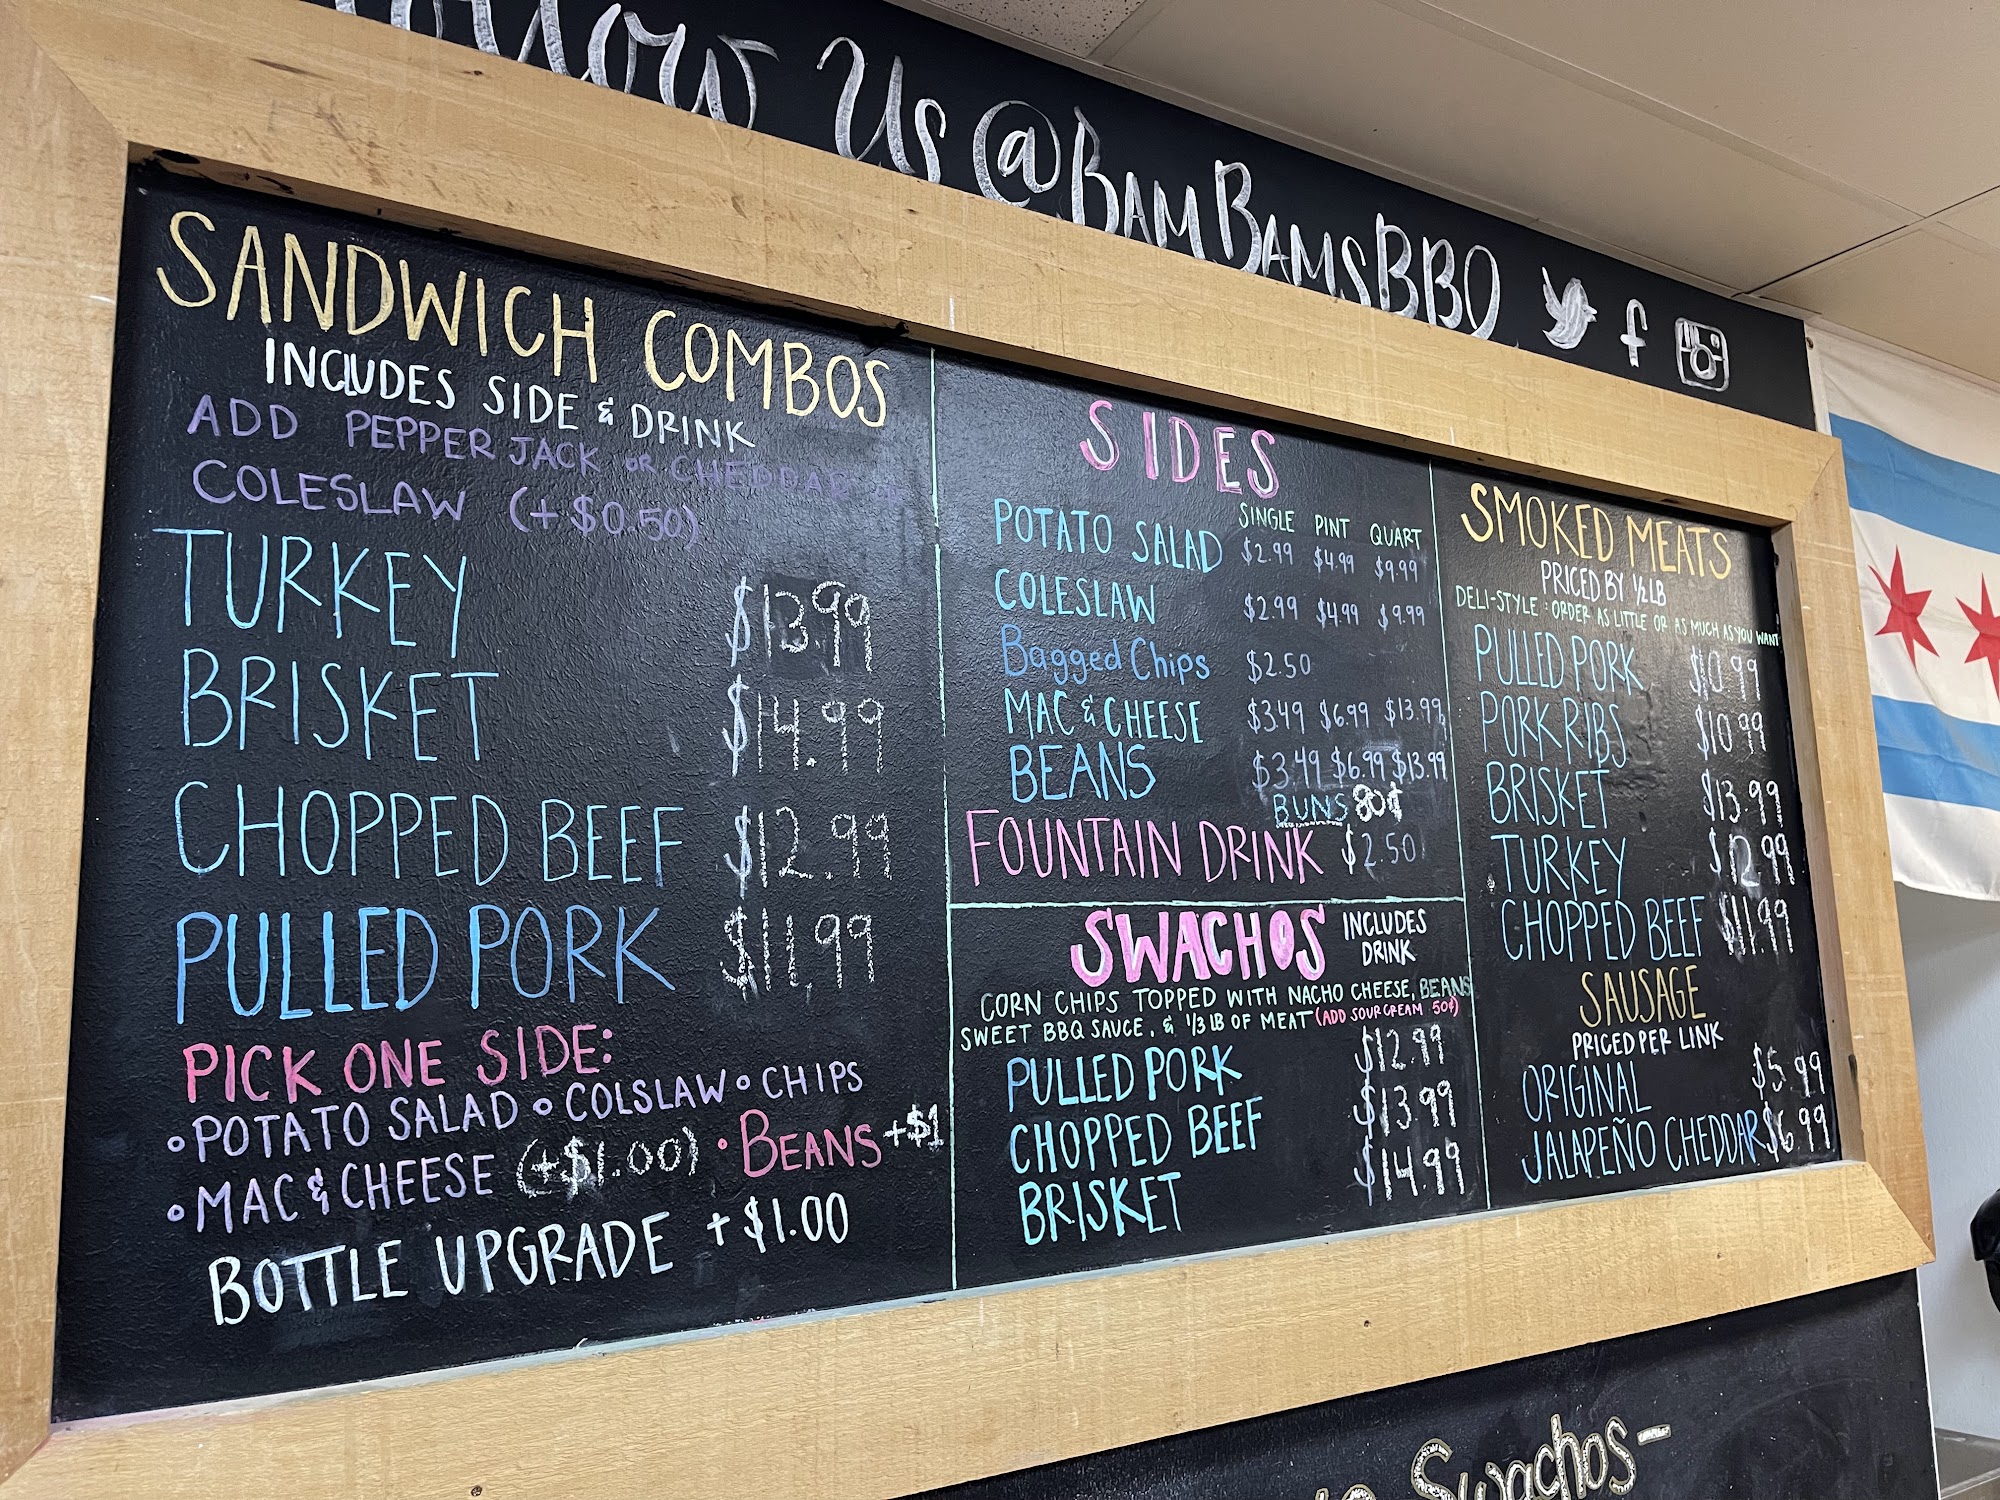 Follow Us @BAMBAMSBBQ
SANDWICH COMBOS
INCLUDES SIDE & DRINK
ADD PEPPER JACK OR CHEDDAR OR
COLESLAW (+$0.50)
TURKEY $13.99
BRISKET $14.99
CHOPPED BEEF $12.99
PULLED PORK $11.99
PICK ONE SIDE:
• POTATO SALAD • COLSLAW • CHIPS
• MAC & CHEESE (+$1.00) • BEANS +$1
BOTTLE UPGRADE +$1.00
SIDES
SINGLE PINT QUART
POTATO SALAD $2.99 $4.99 $9.99
COLESLAW $2.99 $4.99 $9.99
Bagged Chips $2.50
MAC & CHEESE $3.49 $6.99 $13.99
BEANS $3.49 $6.99 $13.99
BUNS 80¢
FOUNTAIN DRINK $2.50
SWACHOS INCLUDES DRINK
CORN CHIPS TOPPED WITH NACHO CHEESE, BEANS
SWEET BBQ SAUCE, & 1/3 LB OF MEAT (ADD SOUR CREAM 50¢)
PULLED PORK $12.99
CHOPPED BEEF $13.99
BRISKET $14.99
SMOKED MEATS
PRICED BY 1/2 LB
DELI-STYLE: ORDER AS LITTLE OR AS MUCH AS YOU WANT
PULLED PORK $10.99
PORK RIBS $10.99
BRISKET $13.99
TURKEY $12.99
CHOPPED BEEF $11.99
SAUSAGE
PRICED PER LINK
ORIGINAL $5.99
JALAPEÑO CHEDDAR $6.99
Swachos-